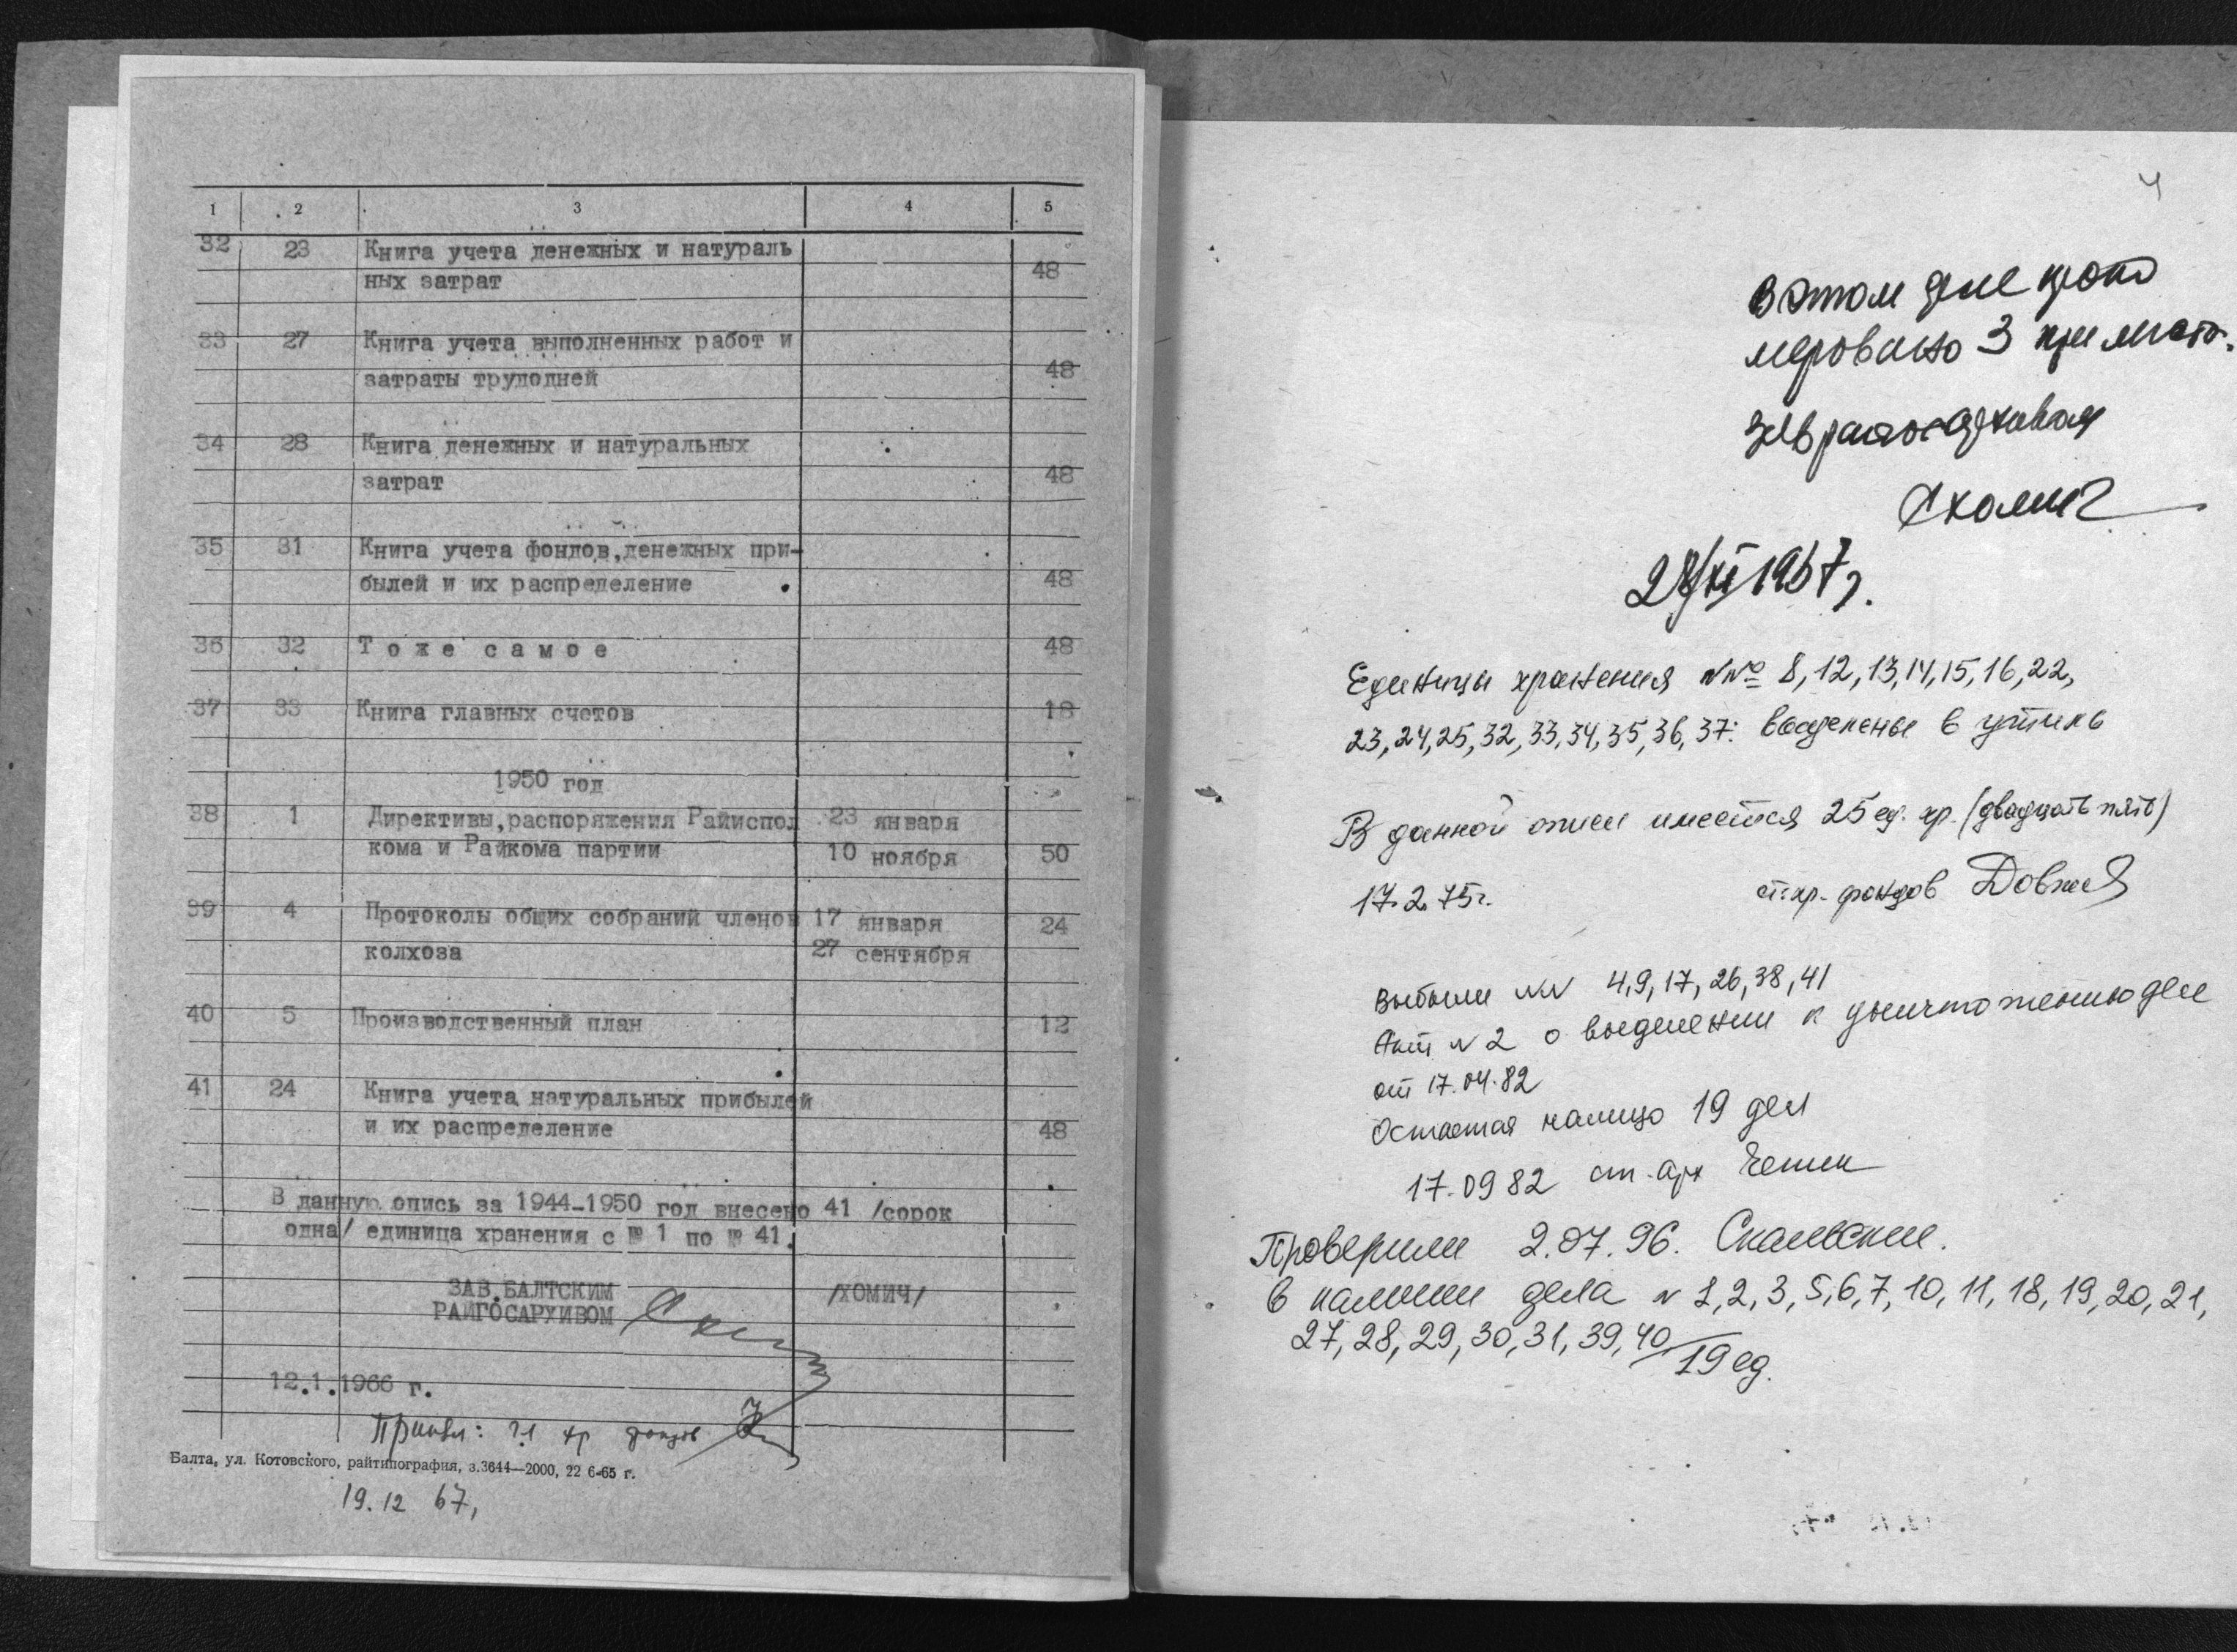 1 2 3 4 5
32 23 Книга учета денежных и натураль
ных затрат 48
33 27 Книга учета выполненных работ и
затраты трудодней 48
34 28 Книга денежных и натуральных
затрат 48
35 31 Книга учета фондов,денежных при-
былей и их распределение 48
36 32 Тоже самое 48
37 33 Книга главных счетов 18
1950 год
38 1 Директивы,распоряжения Райиспол 23 января
кома и Райкома партии 10 ноября 50
39 4 Протоколы общих собраний членов 17 января 24
колхоза 27 сентября
40 5 Производственный план 12
41 24 Книга учета натуральных прибылей
и их распределение 48
В данную опись за 1944-1950 год внесено 41 /сорок
одна/ единица хранения с № 1 по № 41.
ЗАВ.БАЛТСКИМ /ХОМИЧ/
РАЙГОСАРХИВОМ
12.1.1966 г.
хр фондов
Балта, ул. Котовского, райтипография, з.3644—2000, 22 6-65 г.
19.12 67,
4
В этом деле прону
меровано 3 три листа.
Зав райгосархивом
28/XI 1967 г.
Единицы хранения №№ 8, 12, 13, 14, 15, 16, 22,
23, 24, 25, 32, 33, 34, 35, 36, 37: выделены в утиль
В данной описи имеется 25 ед. хр. (двадцать пять)
17.2.75г. ст. хр. фондов
Выбыли NN 4, 9, 17, 26, 38, 41
Акт N 2 о выделении к уничтожению дел
от 17.04.82
Остается налицо 19 дел
17.09 82 ст. арх
Проверили 2.07.96.
В наличии дела N 1, 2, 3, 5, 6, 7, 10, 11, 18, 19, 20, 21,
27, 28, 29, 30, 31, 39, 40 / 19 ед.